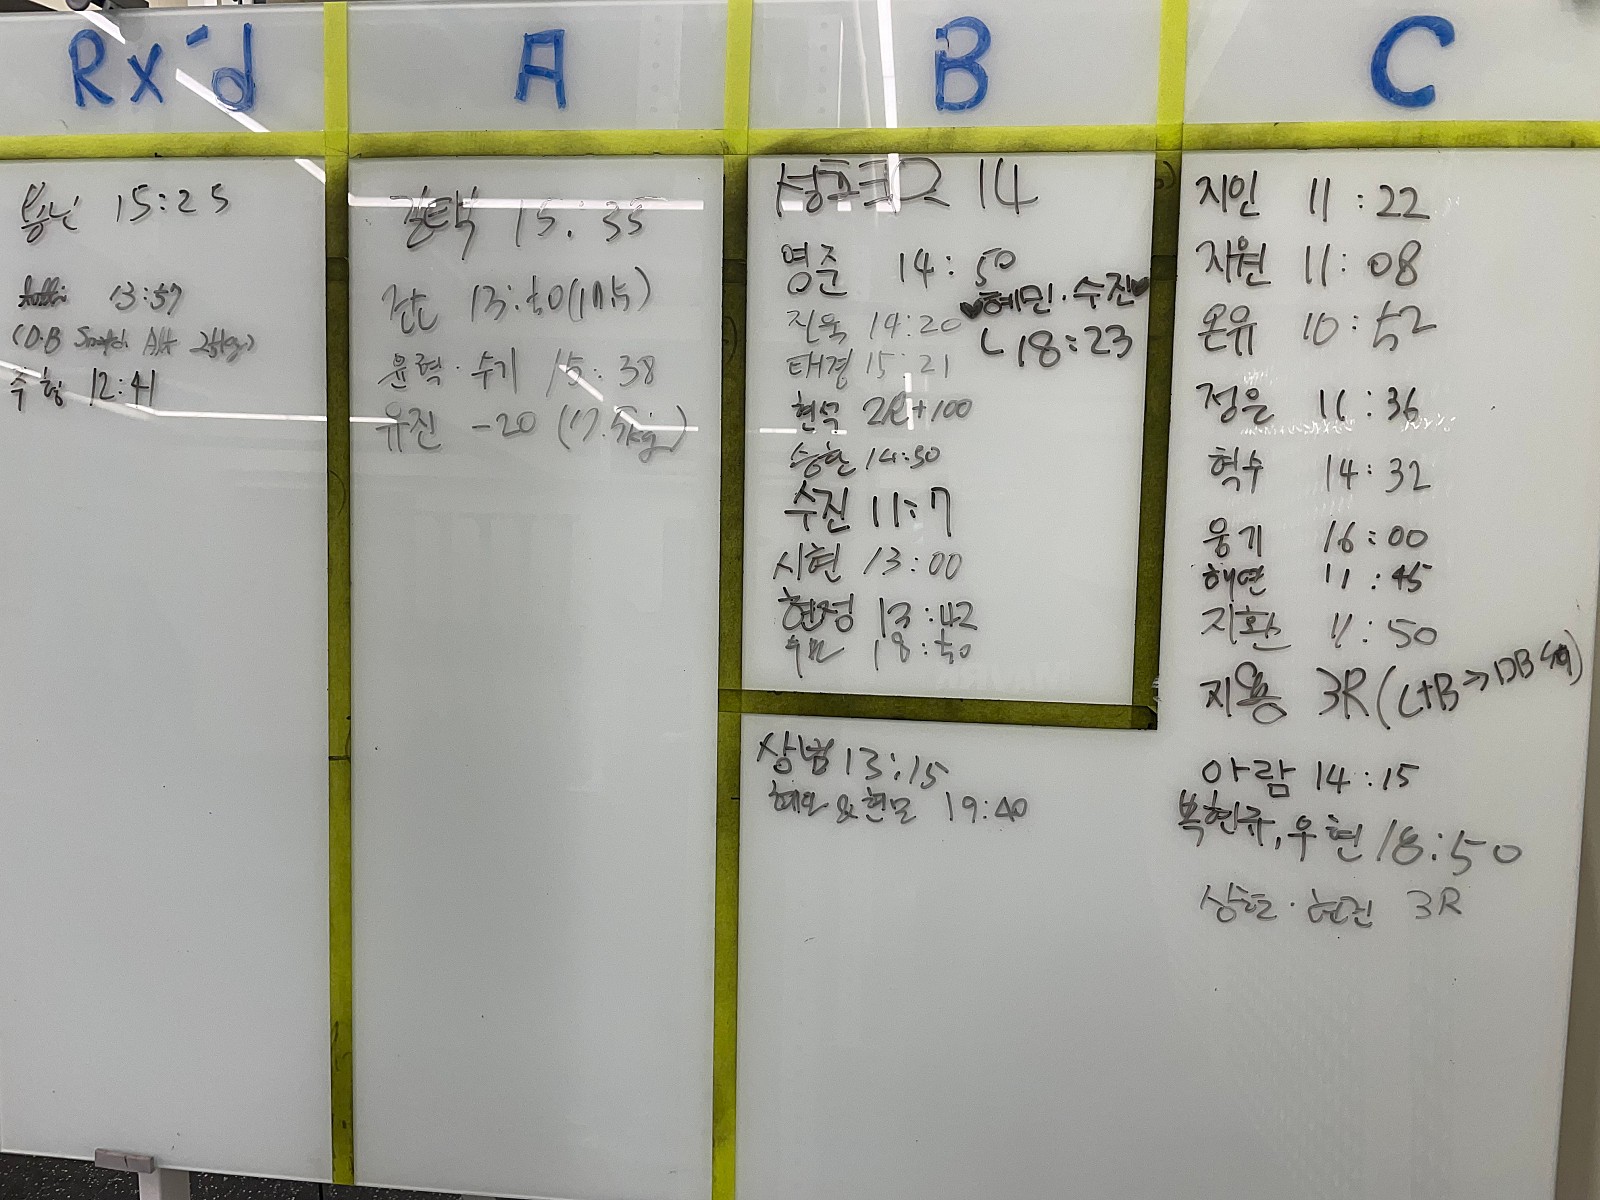 Rx'd
15:25
13:57
(D.B Snatch Alt
수형 12:41
A
김택 15:35
13:50
윤혁·수기 15:38
유진 -20 (17.5kg)
B
14
영준 14:50
♥혜민·수진♥
18:23
진욱 14:20
태경 15:21
현석 2R+100
승환 14:50
수진 11:7
시현 13:00
현정 13:42
18:50
상범 13:15
혜민&현모 19:40
C
지인 11:22
지원 11:08
온유 10:52
정은 11:36
혁수 14:32
웅기 16:00
해연 11:45
지환 11:50
지용 3R
아람 14:15
복현규, 우현 18:50
3R